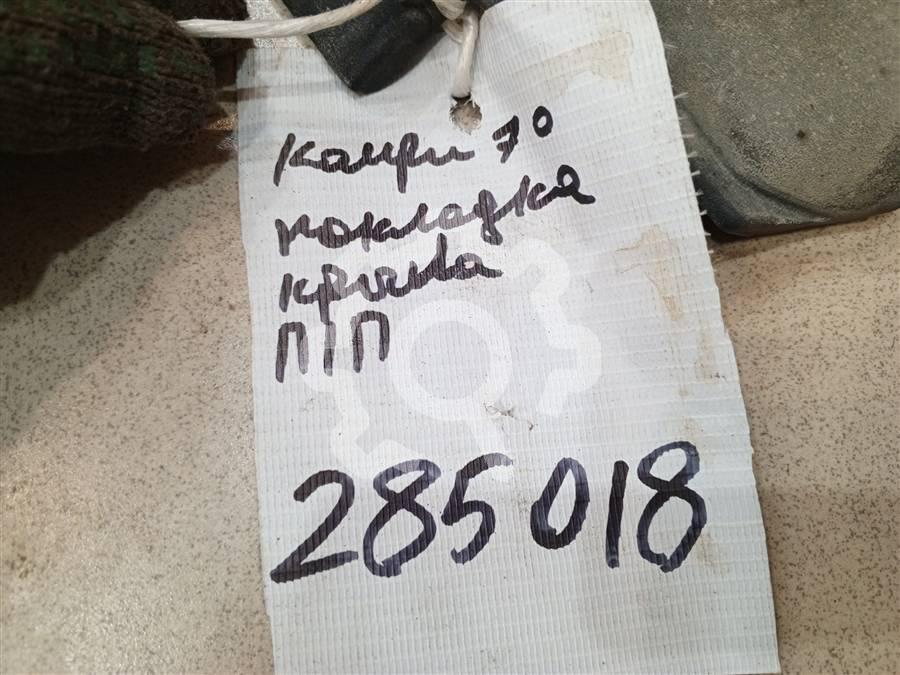 Камри 70
накладка
крыла
П|П
285018